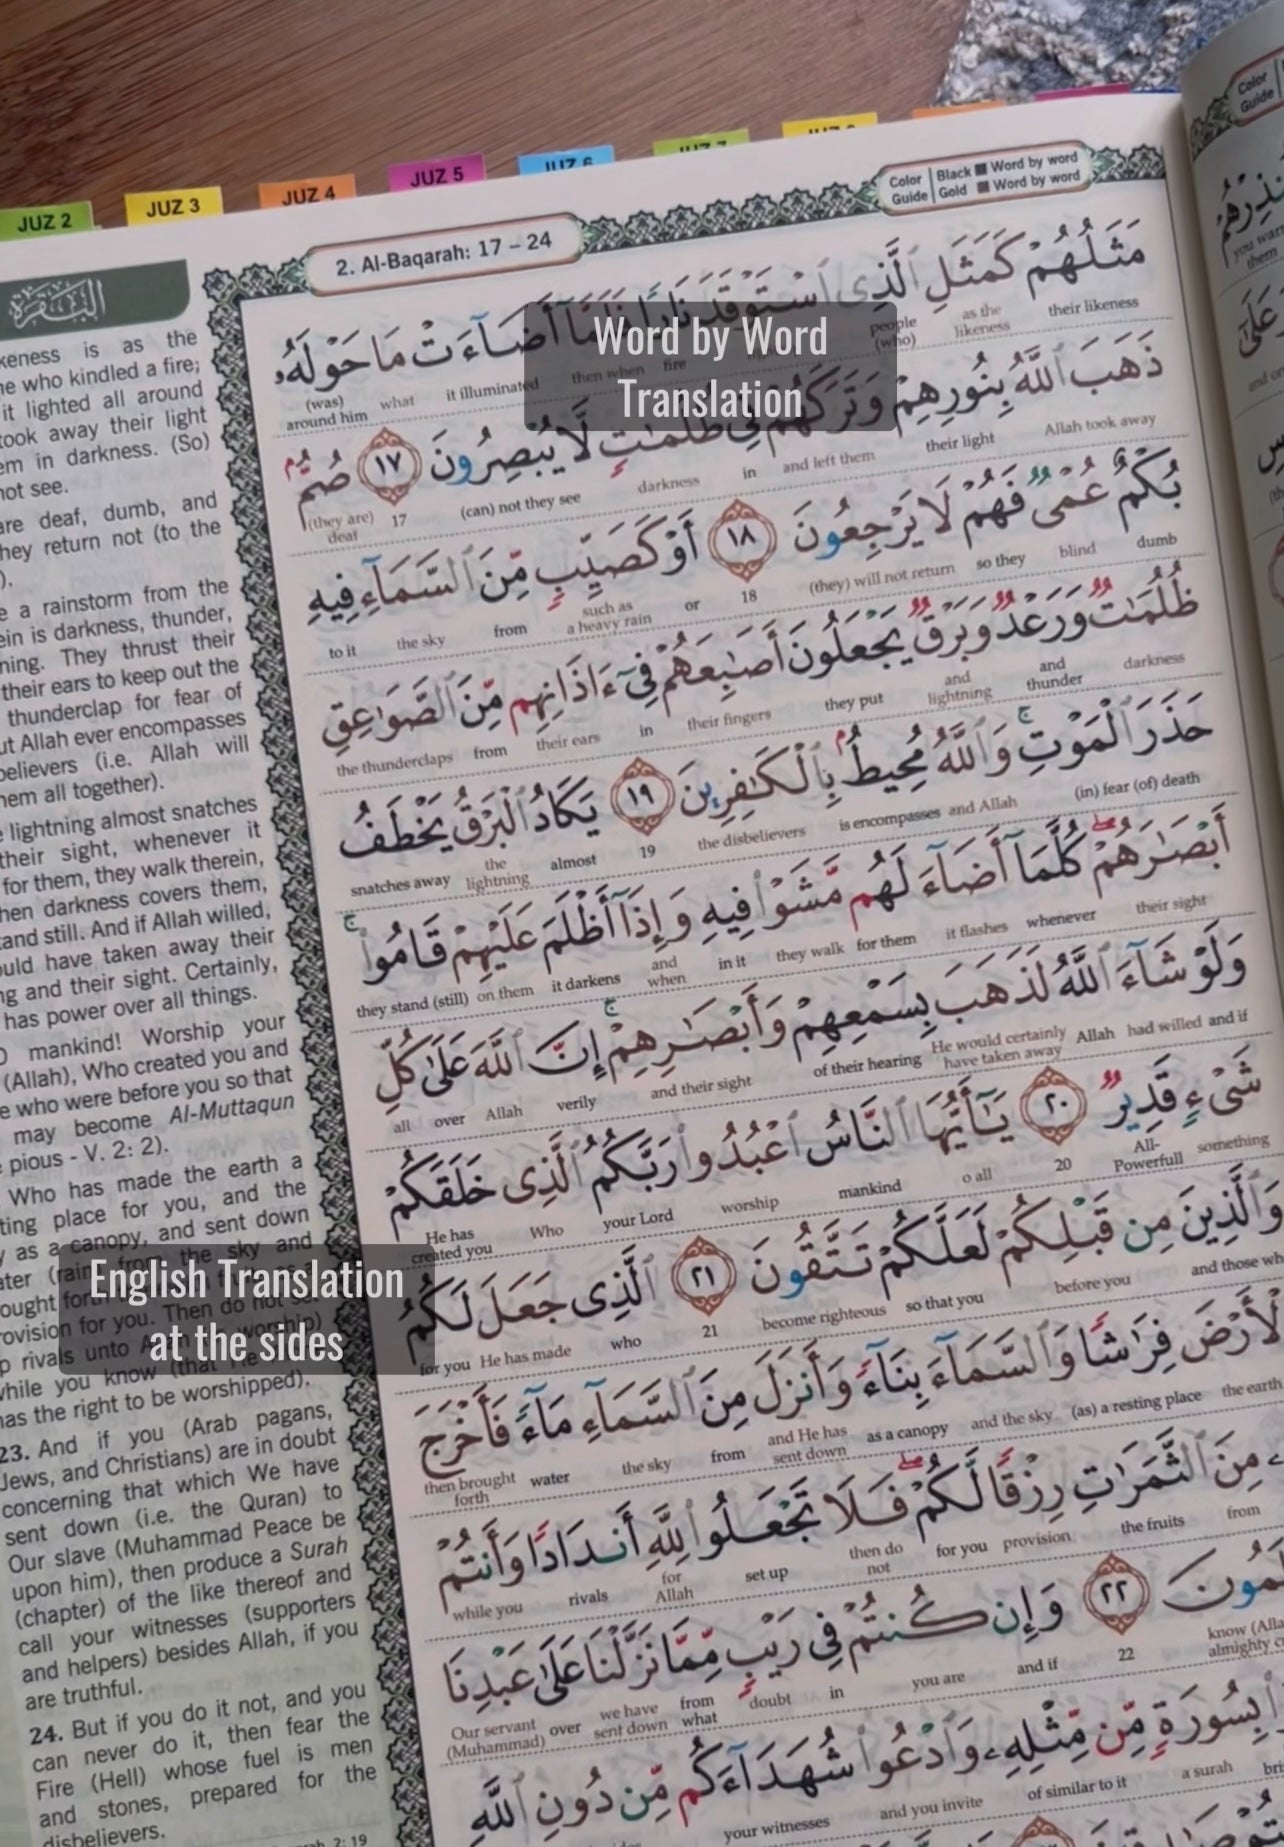 JUZ 2
JUZ 3
JUZ 4
JUZ 5
JUZ 6
2. Al-Baqarah: 17 – 24
Color Guide
Black Word by word
Gold Word by word
Color
Guide
البقرة
مَثَلُهُمْ كَمَثَلِ ٱلَّذِى ٱسْتَوْقَدَ نَارًا فَلَمَّآ أَضَآءَتْ مَا حَوْلَهُۥ
their likeness as the likeness people (who) fire then when it illuminated what (was) around him
Word by Word
Translation
ذَهَبَ ٱللَّهُ بِنُورِهِمْ وَتَرَكَهُمْ فِى ظُلُمَٰتٍ لَّا يُبْصِرُونَ ١٧ صُمٌّۢ
Allah took away their light and left them in darkness (can) not they see 17 (they are) deaf
بُكْمٌ عُمْىٌ فَهُمْ لَا يَرْجِعُونَ ١٨ أَوْ كَصَيِّبٍ مِّنَ ٱلسَّمَآءِ فِيهِ
dumb blind so they (they) will not return 18 or such as a heavy rain from the sky to it
ظُلُمَٰتٌ وَرَعْدٌ وَبَرْقٌ يَجْعَلُونَ أَصَٰبِعَهُمْ فِىٓ ءَاذَانِهِم مِّنَ ٱلصَّوَٰعِقِ
darkness and thunder and lightning they put their fingers in their ears from the thunderclaps
حَذَرَ ٱلْمَوْتِ ۚ وَٱللَّهُ مُحِيطٌۢ بِٱلْكَٰفِرِينَ ١٩ يَكَادُ ٱلْبَرْقُ يَخْطَفُ
(in) fear (of) death and Allah is encompasses the disbelievers 19 almost the lightning snatches away
أَبْصَٰرَهُمْ ۖ كُلَّمَآ أَضَآءَ لَهُم مَّشَوْا۟ فِيهِ وَإِذَآ أَظْلَمَ عَلَيْهِمْ قَامُوا۟ ۚ
their sight whenever it flashes for them they walk in it and when it darkens on them they stand (still)
وَلَوْ شَآءَ ٱللَّهُ لَذَهَبَ بِسَمْعِهِمْ وَأَبْصَٰرِهِمْ ۚ إِنَّ ٱللَّهَ عَلَىٰ كُلِّ
and if had willed Allah He would certainly have taken away of their hearing and their sight verily Allah over all
شَىْءٍ قَدِيرٌ ٢٠ يَٰٓأَيُّهَا ٱلنَّاسُ ٱعْبُدُوا۟ رَبَّكُمُ ٱلَّذِى خَلَقَكُمْ
something All-Powerfull 20 o all mankind worship your Lord Who He has created you
وَٱلَّذِينَ مِن قَبْلِكُمْ لَعَلَّكُمْ تَتَّقُونَ ٢١ ٱلَّذِى جَعَلَ لَكُمُ
and those before you so that you become righteous 21 who He has made for you
ٱلْأَرْضَ فِرَٰشًا وَٱلسَّمَآءَ بِنَآءً وَأَنزَلَ مِنَ ٱلسَّمَآءِ مَآءً فَأَخْرَجَ
the earth (as) a resting place and the sky as a canopy and He has sent down from the sky water then brought forth
مِنَ ٱلثَّمَرَٰتِ رِزْقًا لَّكُمْ ۖ فَلَا تَجْعَلُوا۟ لِلَّهِ أَندَادًا وَأَنتُمْ
from the fruits provision for you then do not set up for Allah rivals while you
٢٢ وَإِن كُنتُمْ فِى رَيْبٍ مِّمَّا نَزَّلْنَا عَلَىٰ عَبْدِنَا
know 22 and if you are in doubt from what we have sent down over Our servant (Muhammad)
بِسُورَةٍ مِّن مِّثْلِهِۦ وَٱدْعُوا۟ شُهَدَآءَكُم مِّن دُونِ ٱللَّهِ
a surah of similar to it and you invite your witnesses
is as the
who kindled a fire;
it lighted all around
took away their light
in darkness. (So)
not see.
are deaf, dumb, and
they return not (to the
a rainstorm from the
is darkness, thunder,
They thrust their
their ears to keep out the
thunderclap for fear of
Allah ever encompasses
(i.e. Allah will
all together).
lightning almost snatches
their sight, whenever it
for them, they walk therein,
darkness covers them,
still. And if Allah willed,
have taken away their
and their sight. Certainly,
has power over all things.
mankind! Worship your
(Allah), Who created you and
who were before you so that
may become Al-Muttaqun
pious - V. 2: 2).
Who has made the earth a
place for you, and the
as a canopy, and sent down
the sky and
English Translation
at the sides
for you. Then do not
rivals unto
while you know (that
has the right to be worshipped).
23. And if you (Arab pagans,
Jews, and Christians) are in doubt
concerning that which We have
sent down (i.e. the Quran) to
Our slave (Muhammad Peace be
upon him), then produce a Surah
(chapter) of the like thereof and
call your witnesses (supporters
and helpers) besides Allah, if you
are truthful.
24. But if you do it not, and you
can never do it, then fear the
Fire (Hell) whose fuel is men
and stones, prepared for the
disbelievers.